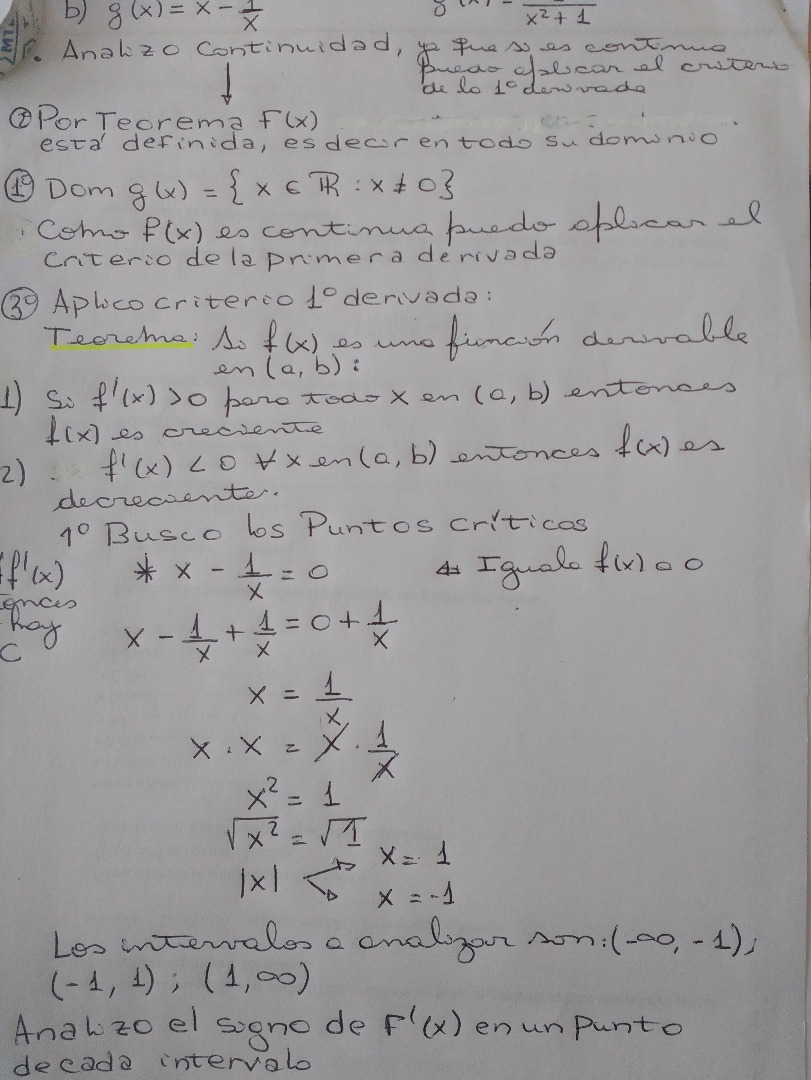 b) g(x) = x - 1/x
x² + 1
. Analizo Continuidad, ya que si es continua
puedo aplicar el criterio
de la 1º derivada
② Por Teorema F(x)
está definida, es decir en todo su dominio
①º Dom g(x) = { x ∈ ℝ : x ≠ 0 }
Como f(x) es continua puedo aplicar el
criterio de la primera derivada
③º Aplico criterio 1º derivada:
Teorema: Si f(x) es una función derivable
en (a, b):
1) Si f'(x) > 0 para todo x en (a, b) entonces
f(x) es creciente
2) . f'(x) < 0 ∀ x en (a, b) entonces f(x) es
decreciente.
1º Busco los Puntos críticos
f'(x) * x - 1/x = 0 Igualo f(x) a 0
hay x - 1/x + 1/x = 0 + 1/x
C
x = 1/x
x . x = x . 1/x
x² = 1
√x² = √1
|x| x = 1
x = -1
Los intervalos a analizar son: (-∞, -1);
(-1, 1); (1, ∞)
Analizo el signo de F'(x) en un punto
de cada intervalo